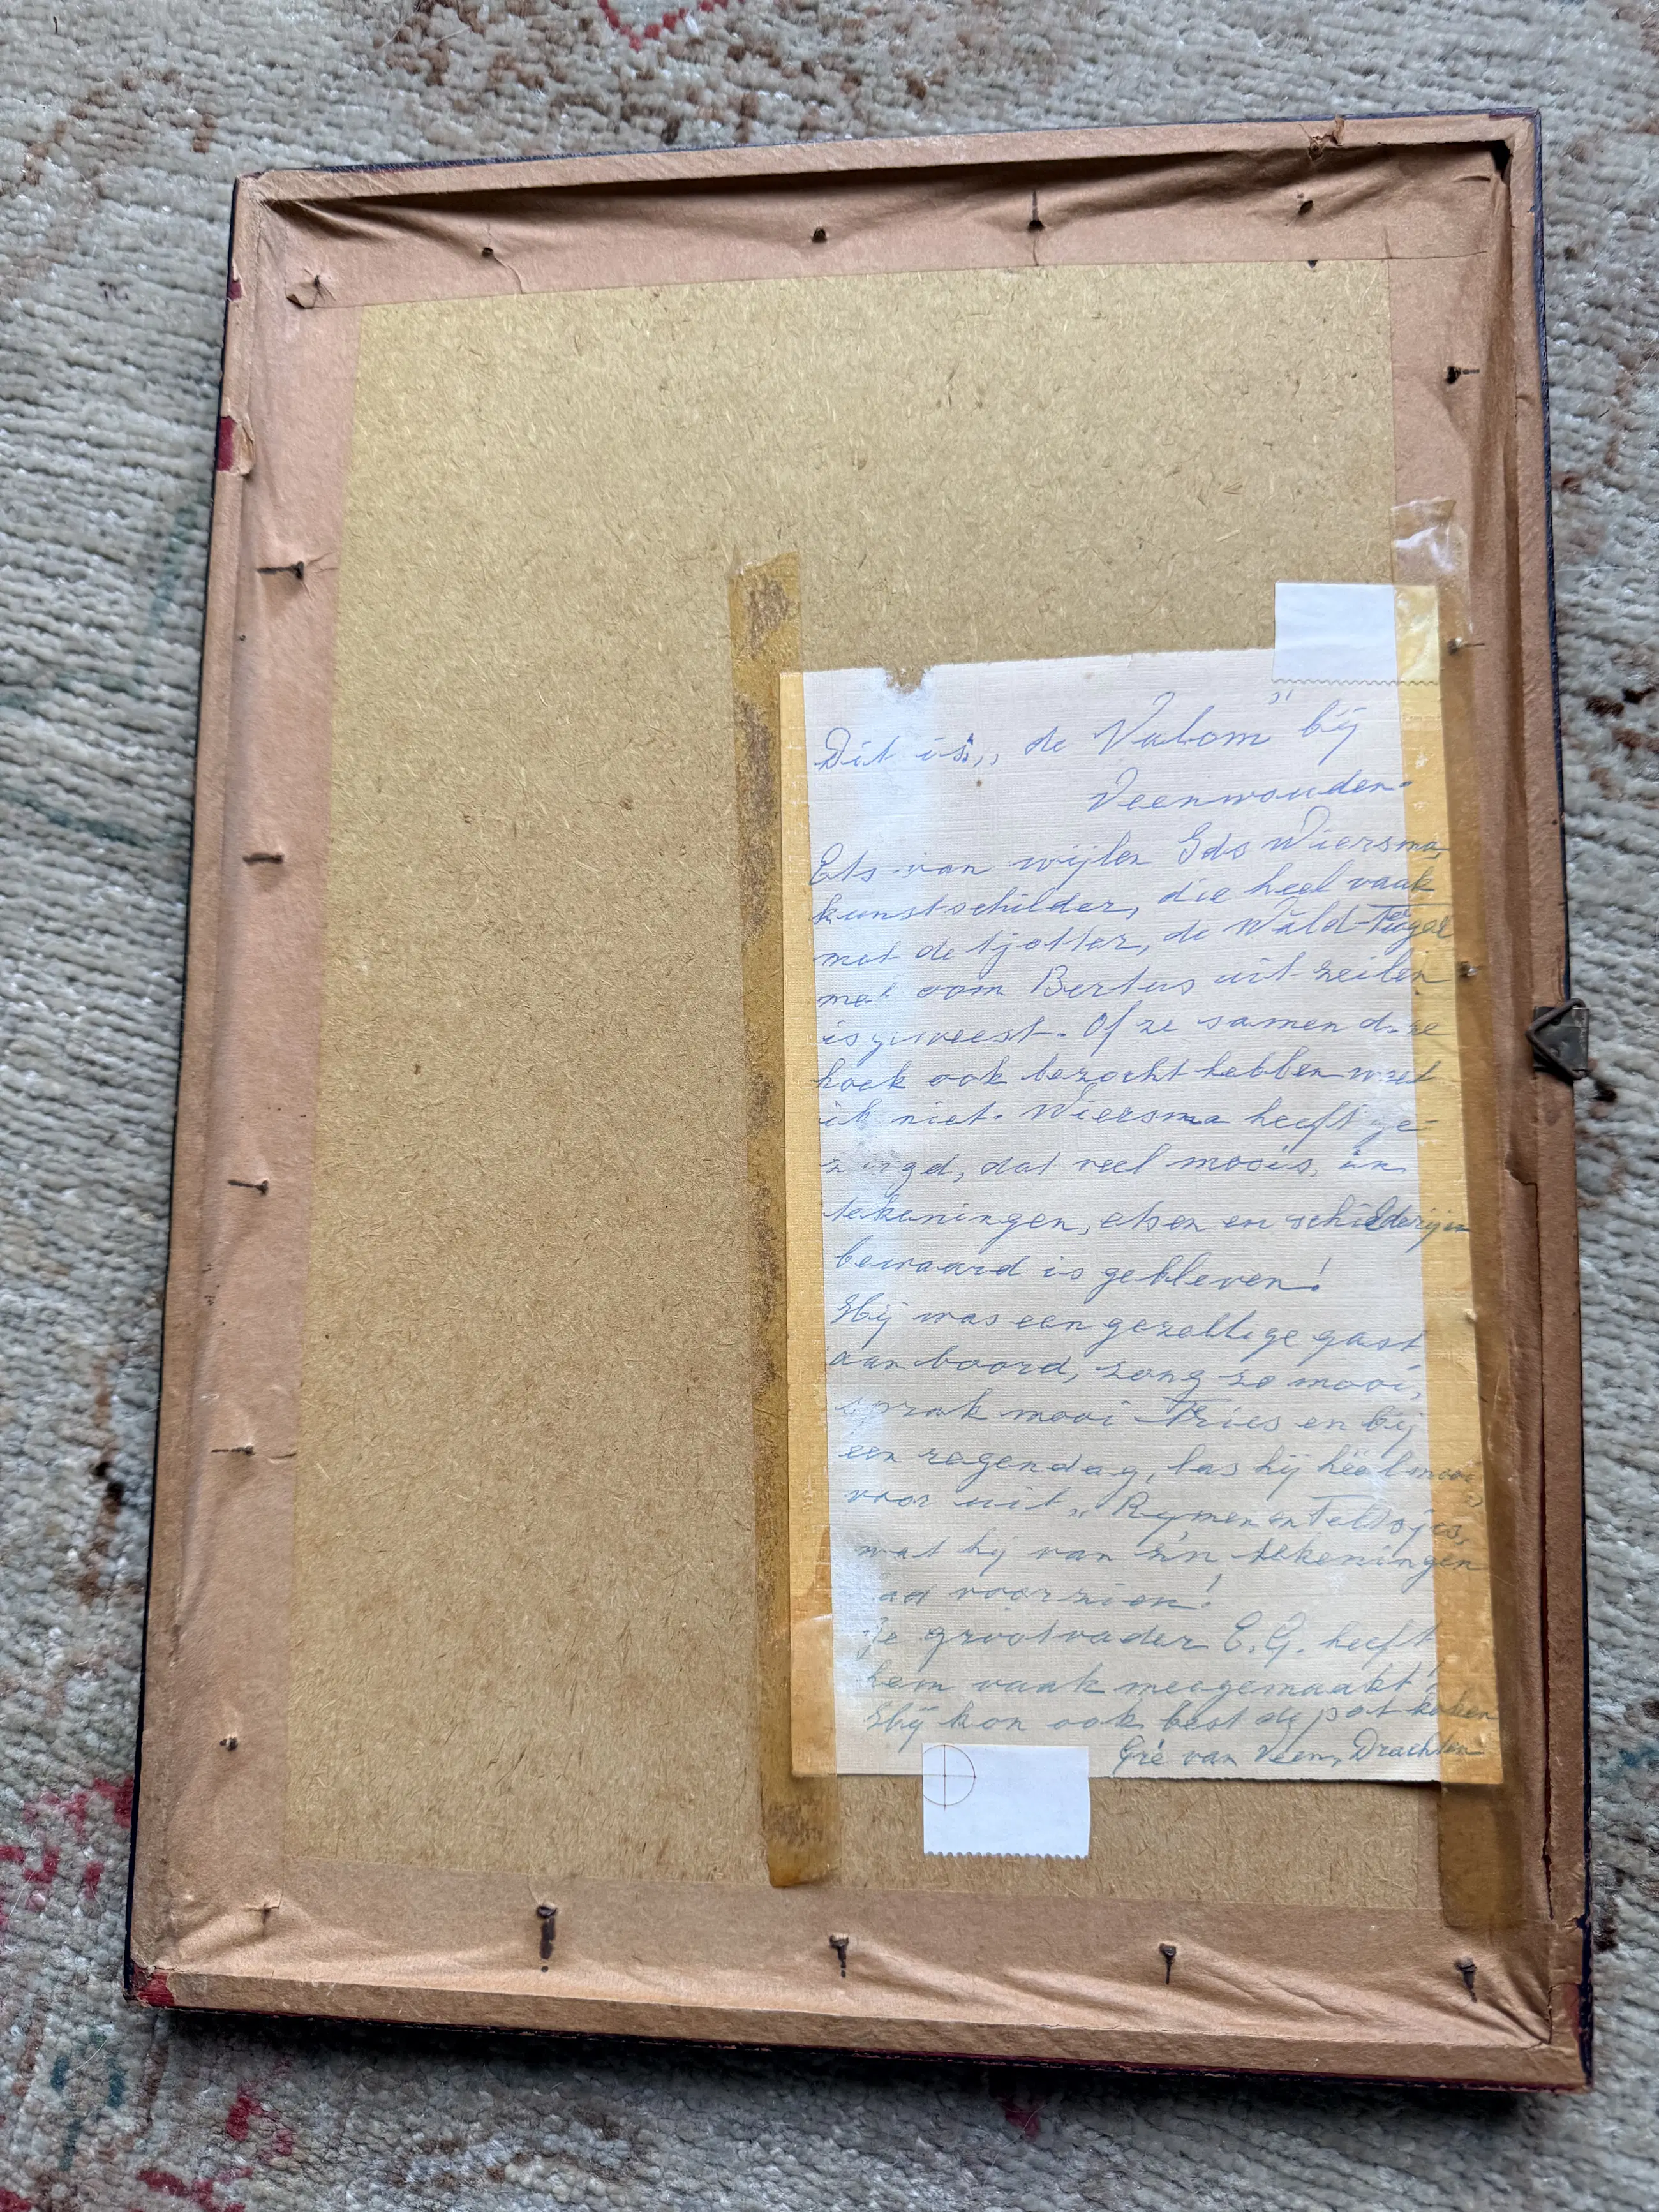 Dit is „de Valom" bij
Veenwouden.
Ets van wijlen Ids Wiersma,
kunstschilder, die heel vaak
met de tjotter, de Wâld-Fûgel
met oom Bertus uit zeilen
is geweest. Of ze samen deze
hoek ook bezocht hebben weet
ik niet. Wiersma heeft ge-
zorgd, dat veel moois, in
tekeningen, etsen en schilderijen
bewaard is gebleven!
Hij was een gezellige gast
aan boord, zong zo mooi,
sprak mooi Fries en bij
een regendag, las hij héél mooi
voor uit „Rymen en Teltsjes"
wat hij van z'n tekeningen
had voorzien!
Je grootvader E.G. heeft
hem vaak meegemaakt!
Hij kon ook best de pot koken
Gré van Veen, Drachten